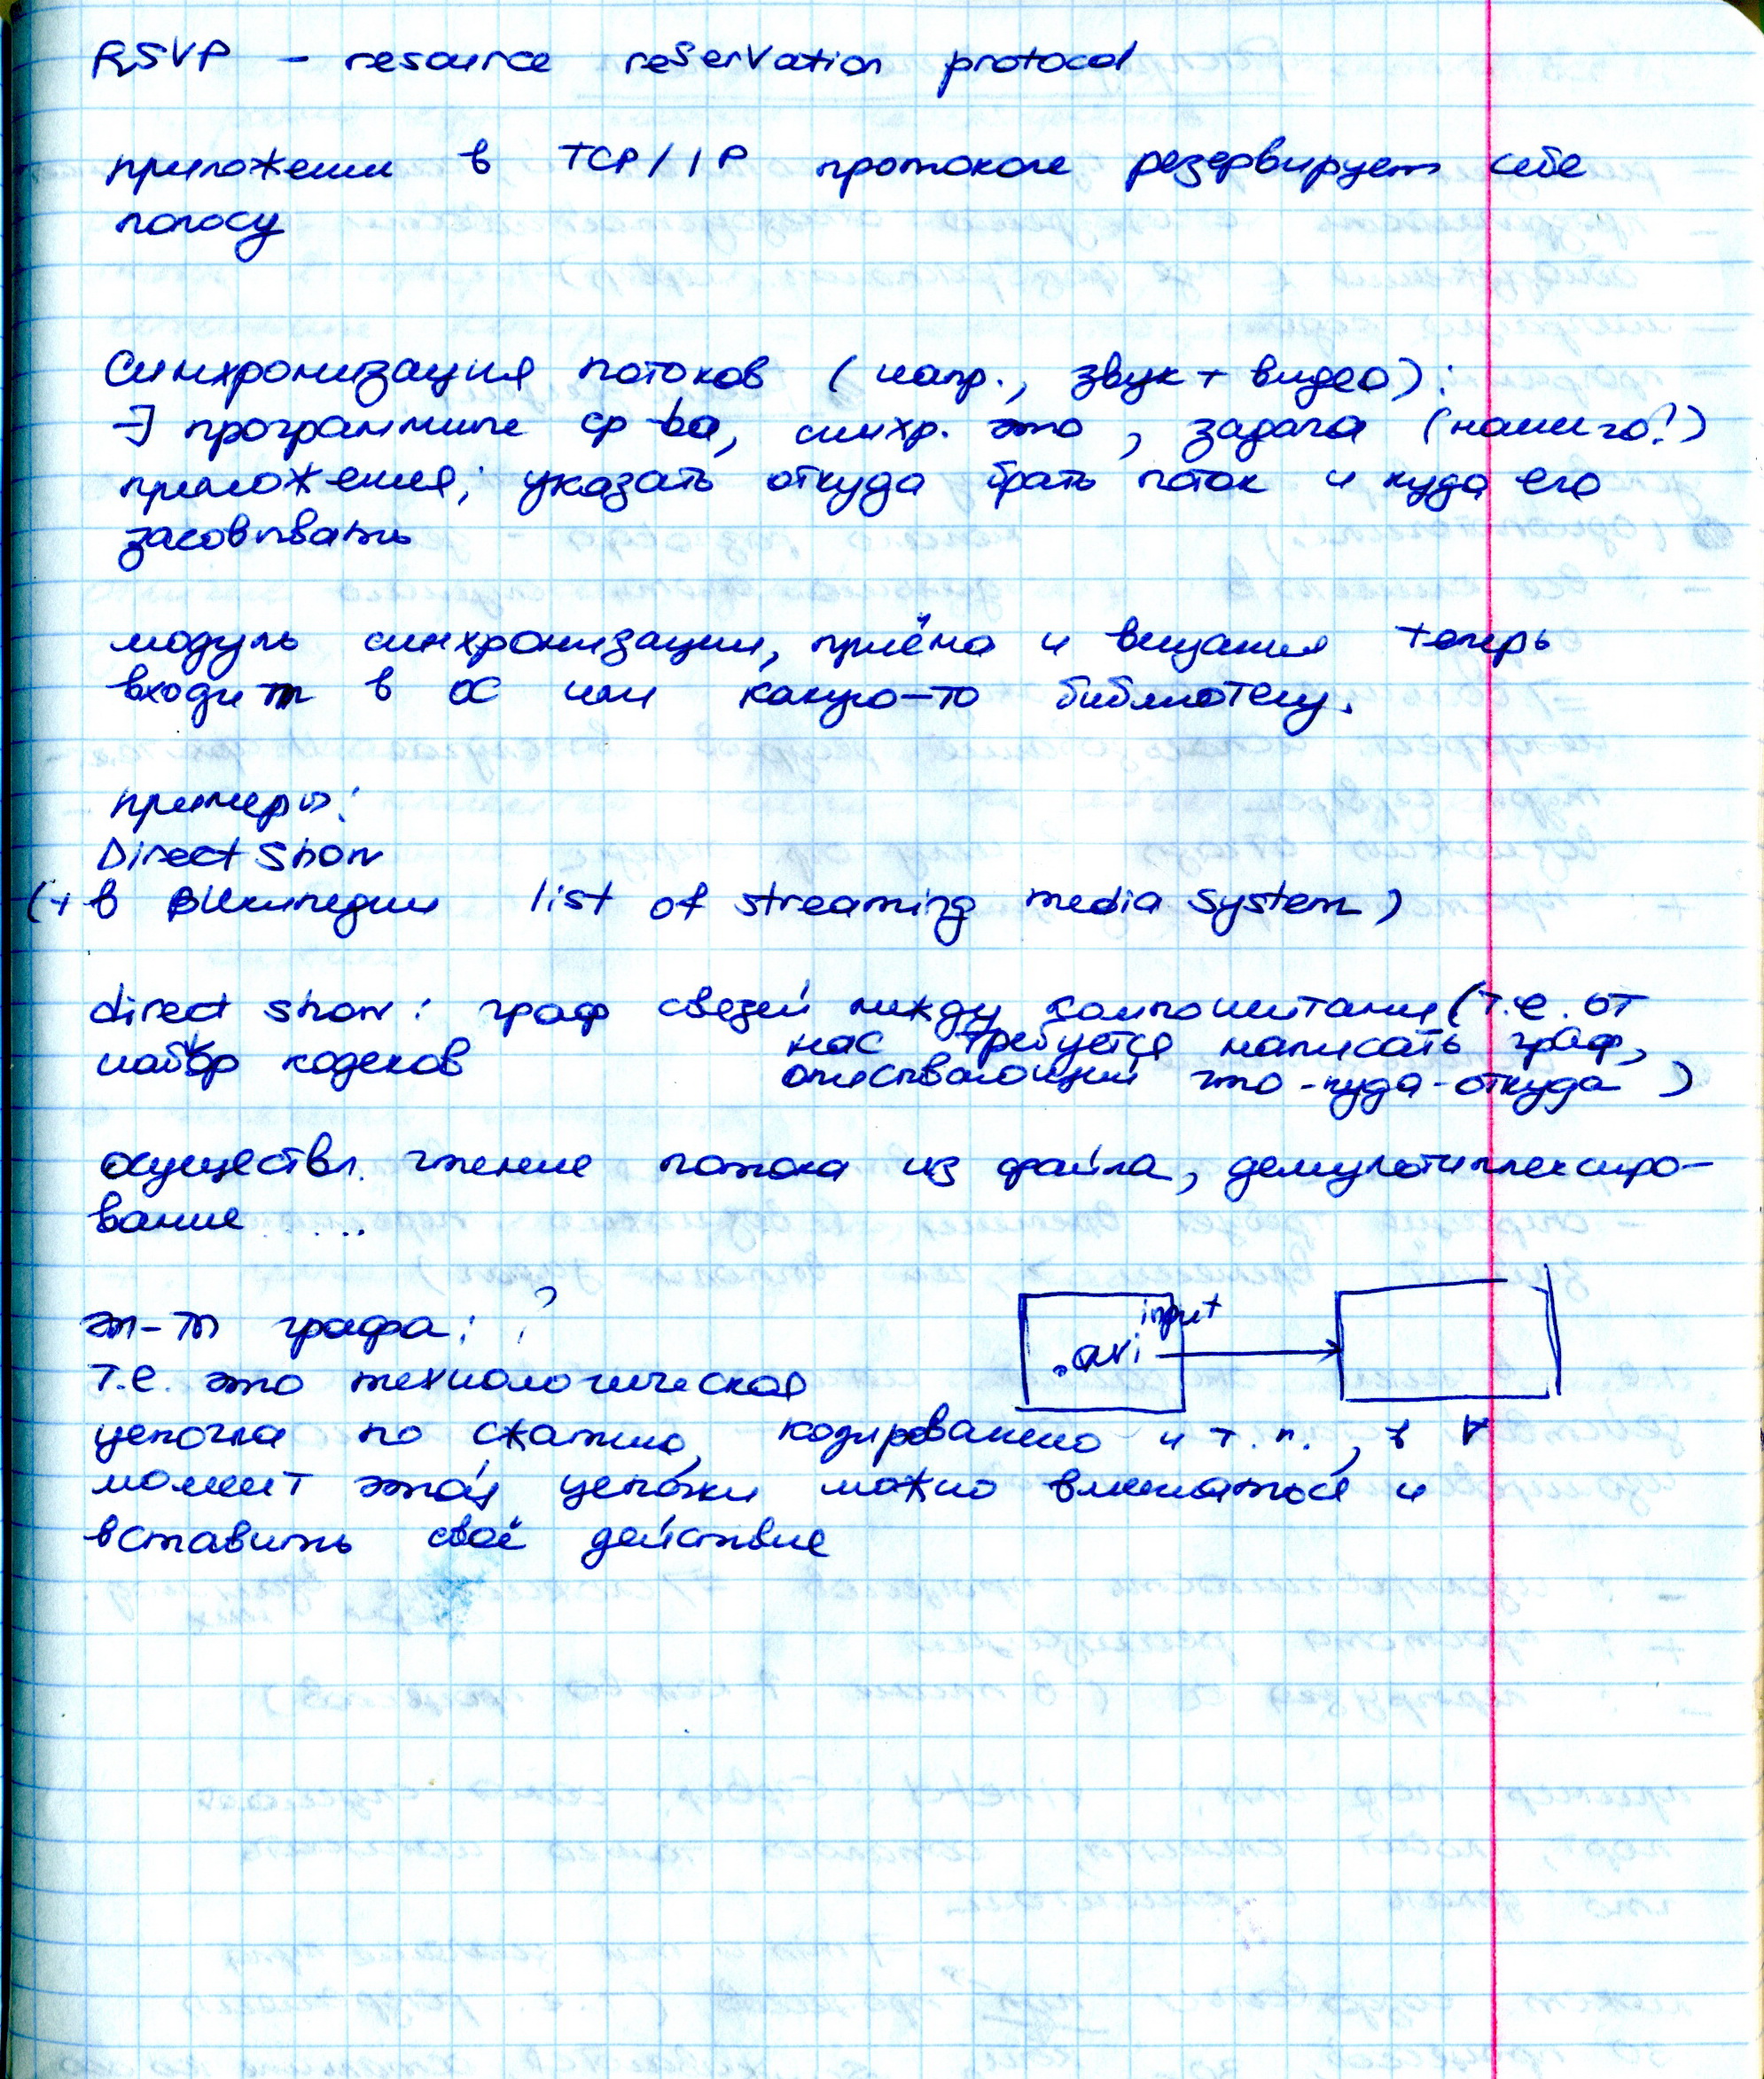 RSVP - resource reSerVation protocol
приложении в TCP/IP протоколе резервирует себе
полосу
Синхронизация потоков (напр., звук + видео):
программные ср-ва, синхр. это, задача (нашего!)
приложения; указать откуда брать поток и куда его
засовывать
модуль синхронизации, приёма и вещания теперь
входит в ОС или какую-то библиотеку.
примеры:
Direct Show
(+ в Википедии list of streaming media system)
direct show: граф связей между компонентами (т.е. от
нас требуется написать граф,
набор кодеков описывающий что-куда-откуда)
осуществл. чтение потока из файла, демультиплексиро-
вание .....
эл-т графа: ?
input
.avi
т.е. это технологическая
цепочка по сжатию, кодированию и т.п., в ∀
момент этой цепочки можно вмешаться и
вставить своё действие